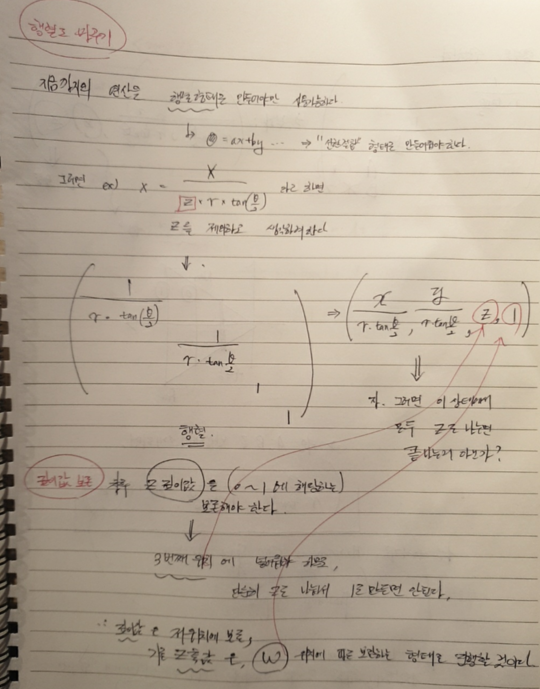 행렬로 바꾸기
지금까지의 연산을 행렬형태로 만들어야만 사용가능하다
↳ @ = ax+by ... → "선형결합" 형태로 만들어줘야 한다.
그러면 ex) x = X / (z · r · tan(θ/2)) 라고 하면
z를 제외하고 생각하려한다
⇓
( 1 / (r · tan(θ/2))
1 / (r · tan θ/2)
1
1 )
⇒ ( x / (r·tan θ/2) , y / (r·tan θ/2) , z, 1 )
행렬.
⇓
자. 그러면 이 상태에서
모두 z로 나누면
끝나는거 아닌가?
깊이값 보존 향후 z 깊이값은 (0~1에 해당하는)
보존해야 한다.
↓
3번째 위치에
단순히 z로 나눠서 1로 만들면 안된다.
∴ 깊이값은 자리에 보존,
기존 z축값은, w 위치에 따로 보관하는 형태로 진행할 것이다